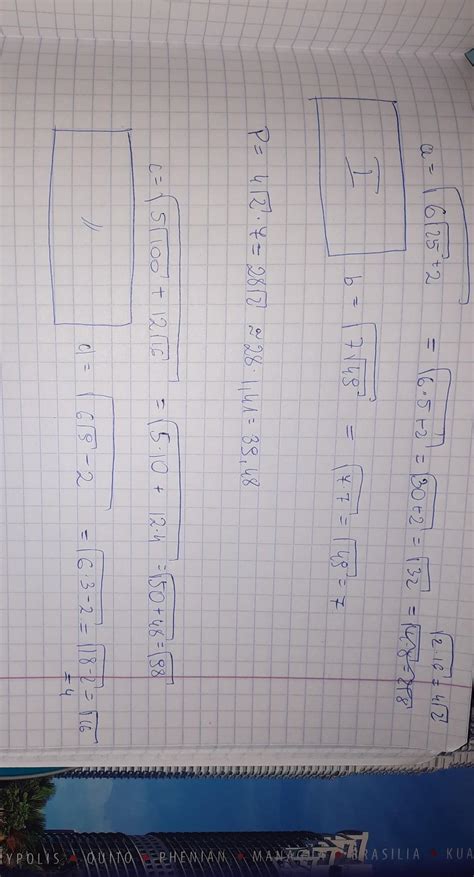 a = √(6√25 + 2) = √(6·5+2) = √(30+2) = √32 = √4·8 = 2√8
√2·16 = 4√2
I
b = √(7√49) = √(7·7) = √49 = 7
P = 4√2 · 7 = 28√2 ≈ 28 · 1,41 = 39,48
c = √(5√100 + 12√16) = √(5·10 + 12·4) = √(50+48) = √98
II
d = √(6√9 - 2) = √(6·3-2) = √(18-2) = √16
= 4
YPOLIS ★ QUITO ★ PHENIAN ★ MANAGUA ★ BRASILIA ★ KUA